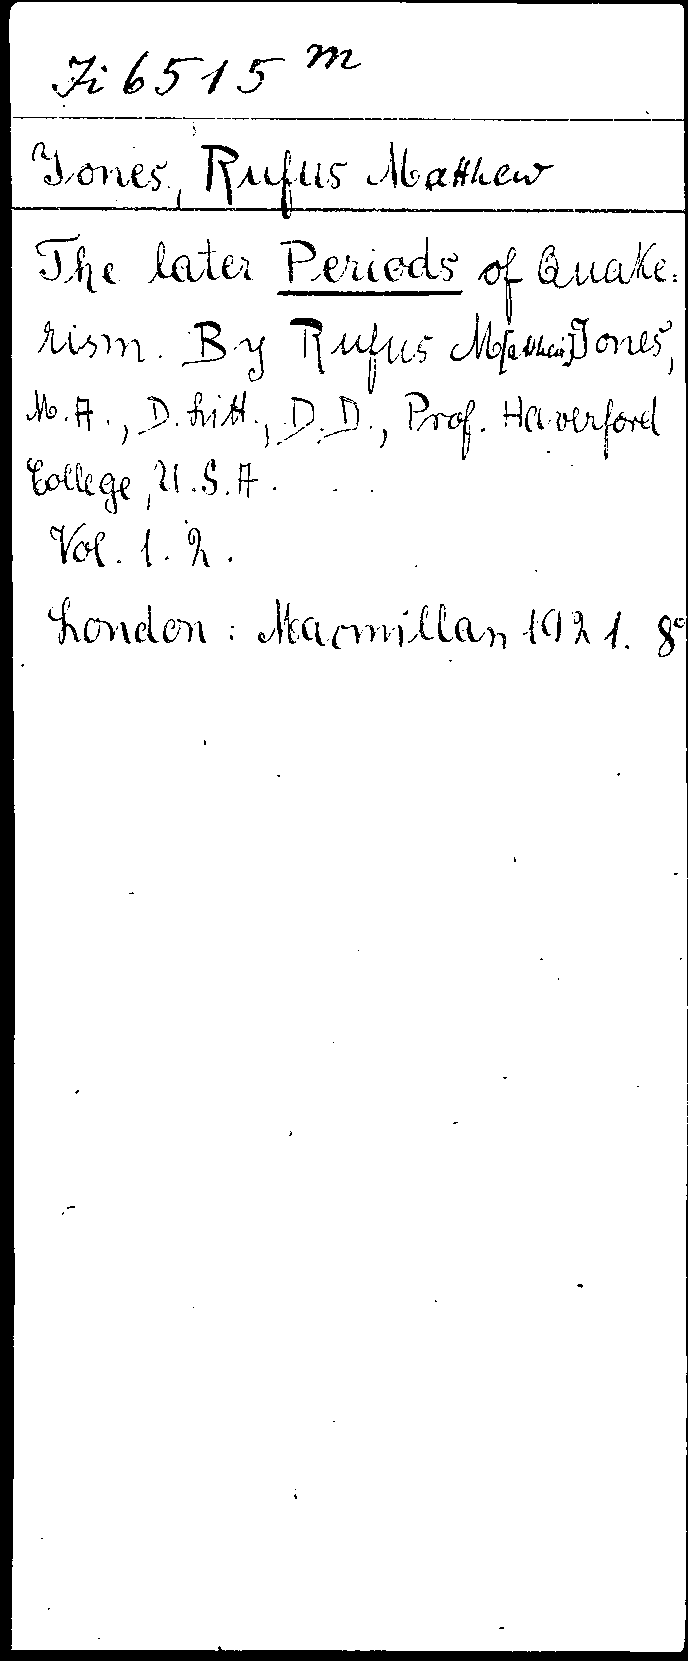 Fi 6515 m
Jones, Rufus Matthew
The later Periods of Quake=
rism. By Rufus M[atthew] Jones,
M.A., D.Litt., D.D., Prof. Haverford
College, U.S.A. . .
Vol. 1. 2.
London: Macmillan 1921. 8°